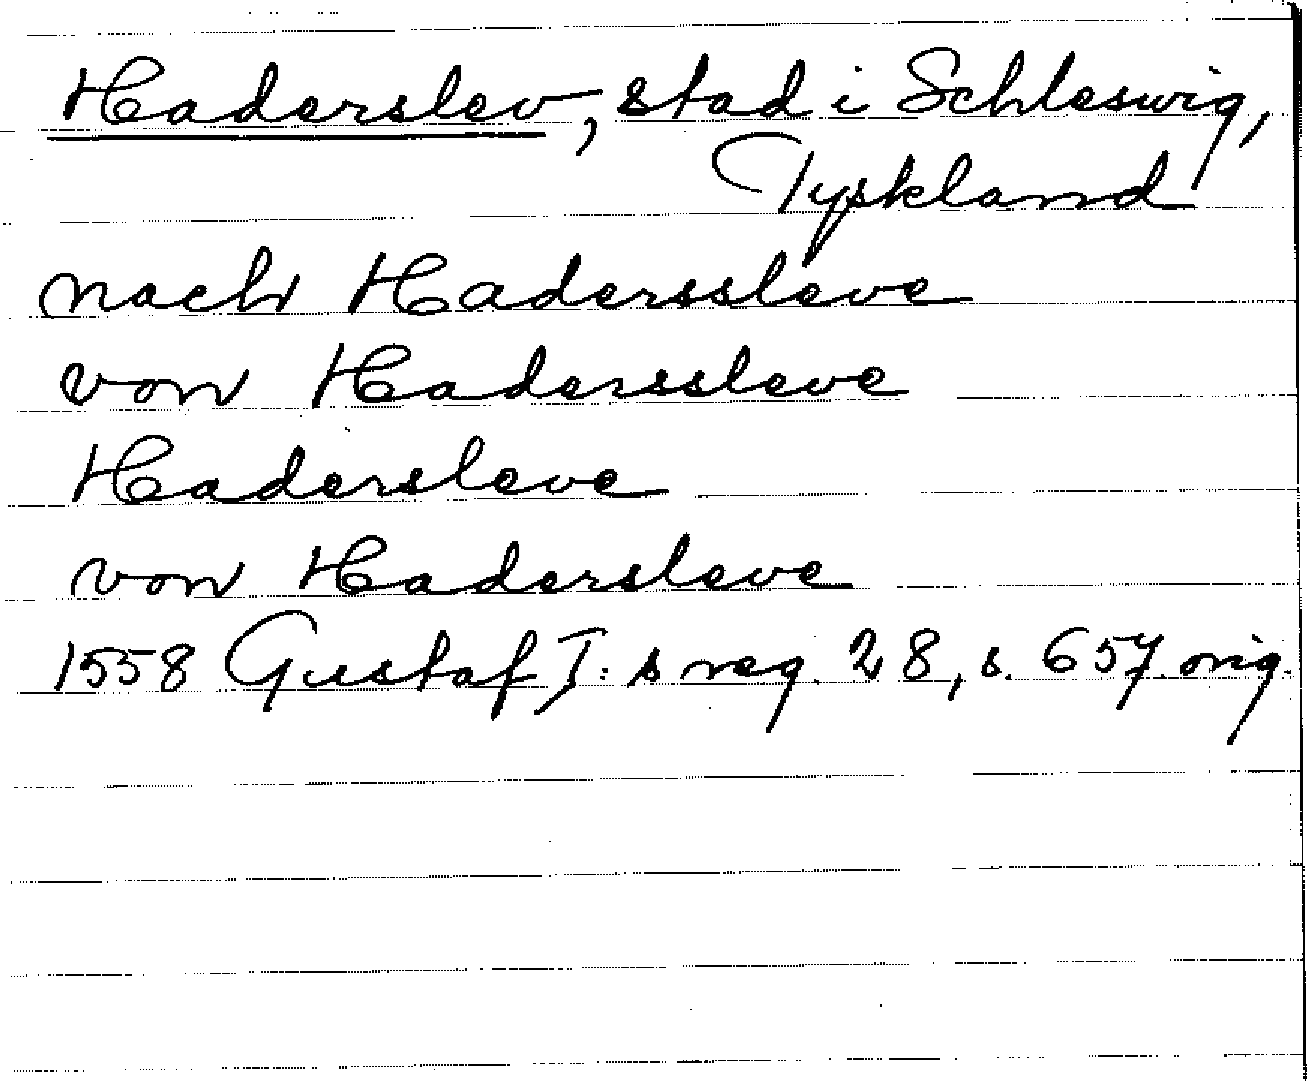 Haderslev, stad i Schleswig,
Tyskland
nach Haderssleve
von Haderssleve
Hadersleve
von Hadersleve
1558 Gustaf I:s reg. 28, s. 657. orig.